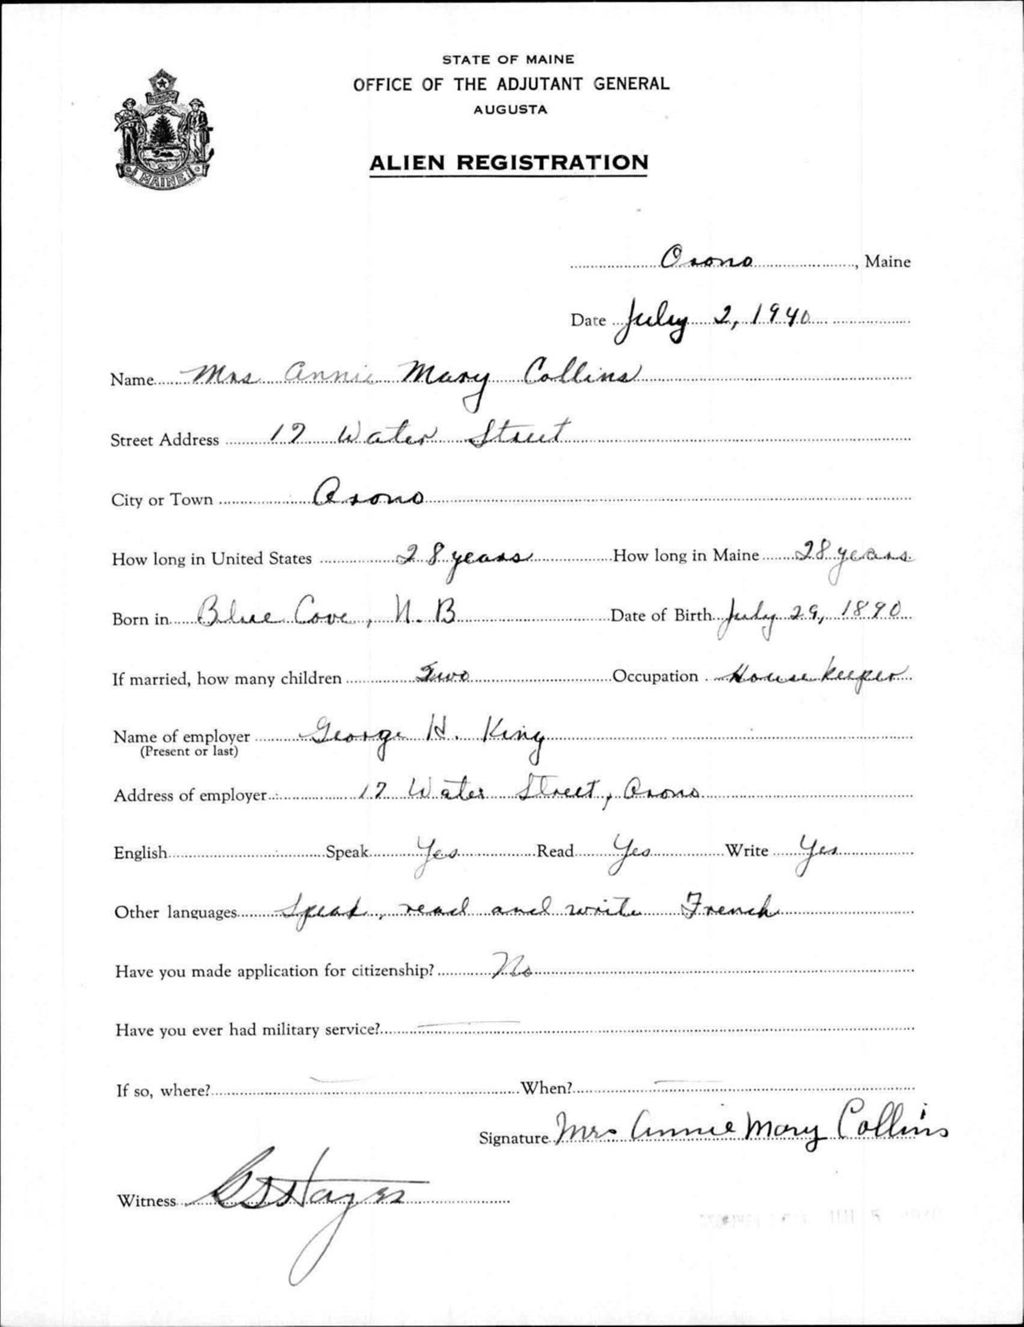 STATE OF MAINE
OFFICE OF THE ADJUTANT GENERAL
AUGUSTA
MAINE
ALIEN REGISTRATION
Orono, Maine
Date July 2, 1940
Name Mrs Annie Mary Collins
Street Address 17 Water Street
City or Town Orono
How long in United States 28 years How long in Maine 28 years
Born in Blue Cove, N.B Date of Birth July 29, 1890
If married, how many children Two Occupation Housekeeper
Name of employer George H. King
(Present or last)
Address of employer 17 Water Street, Orono
English Speak Yes Read Yes Write Yes
Other languages Speak, read and write French
Have you made application for citizenship? No
Have you ever had military service? —
If so, where? — When? —
Signature Mrs Annie Mary Collins
Witness Hayes